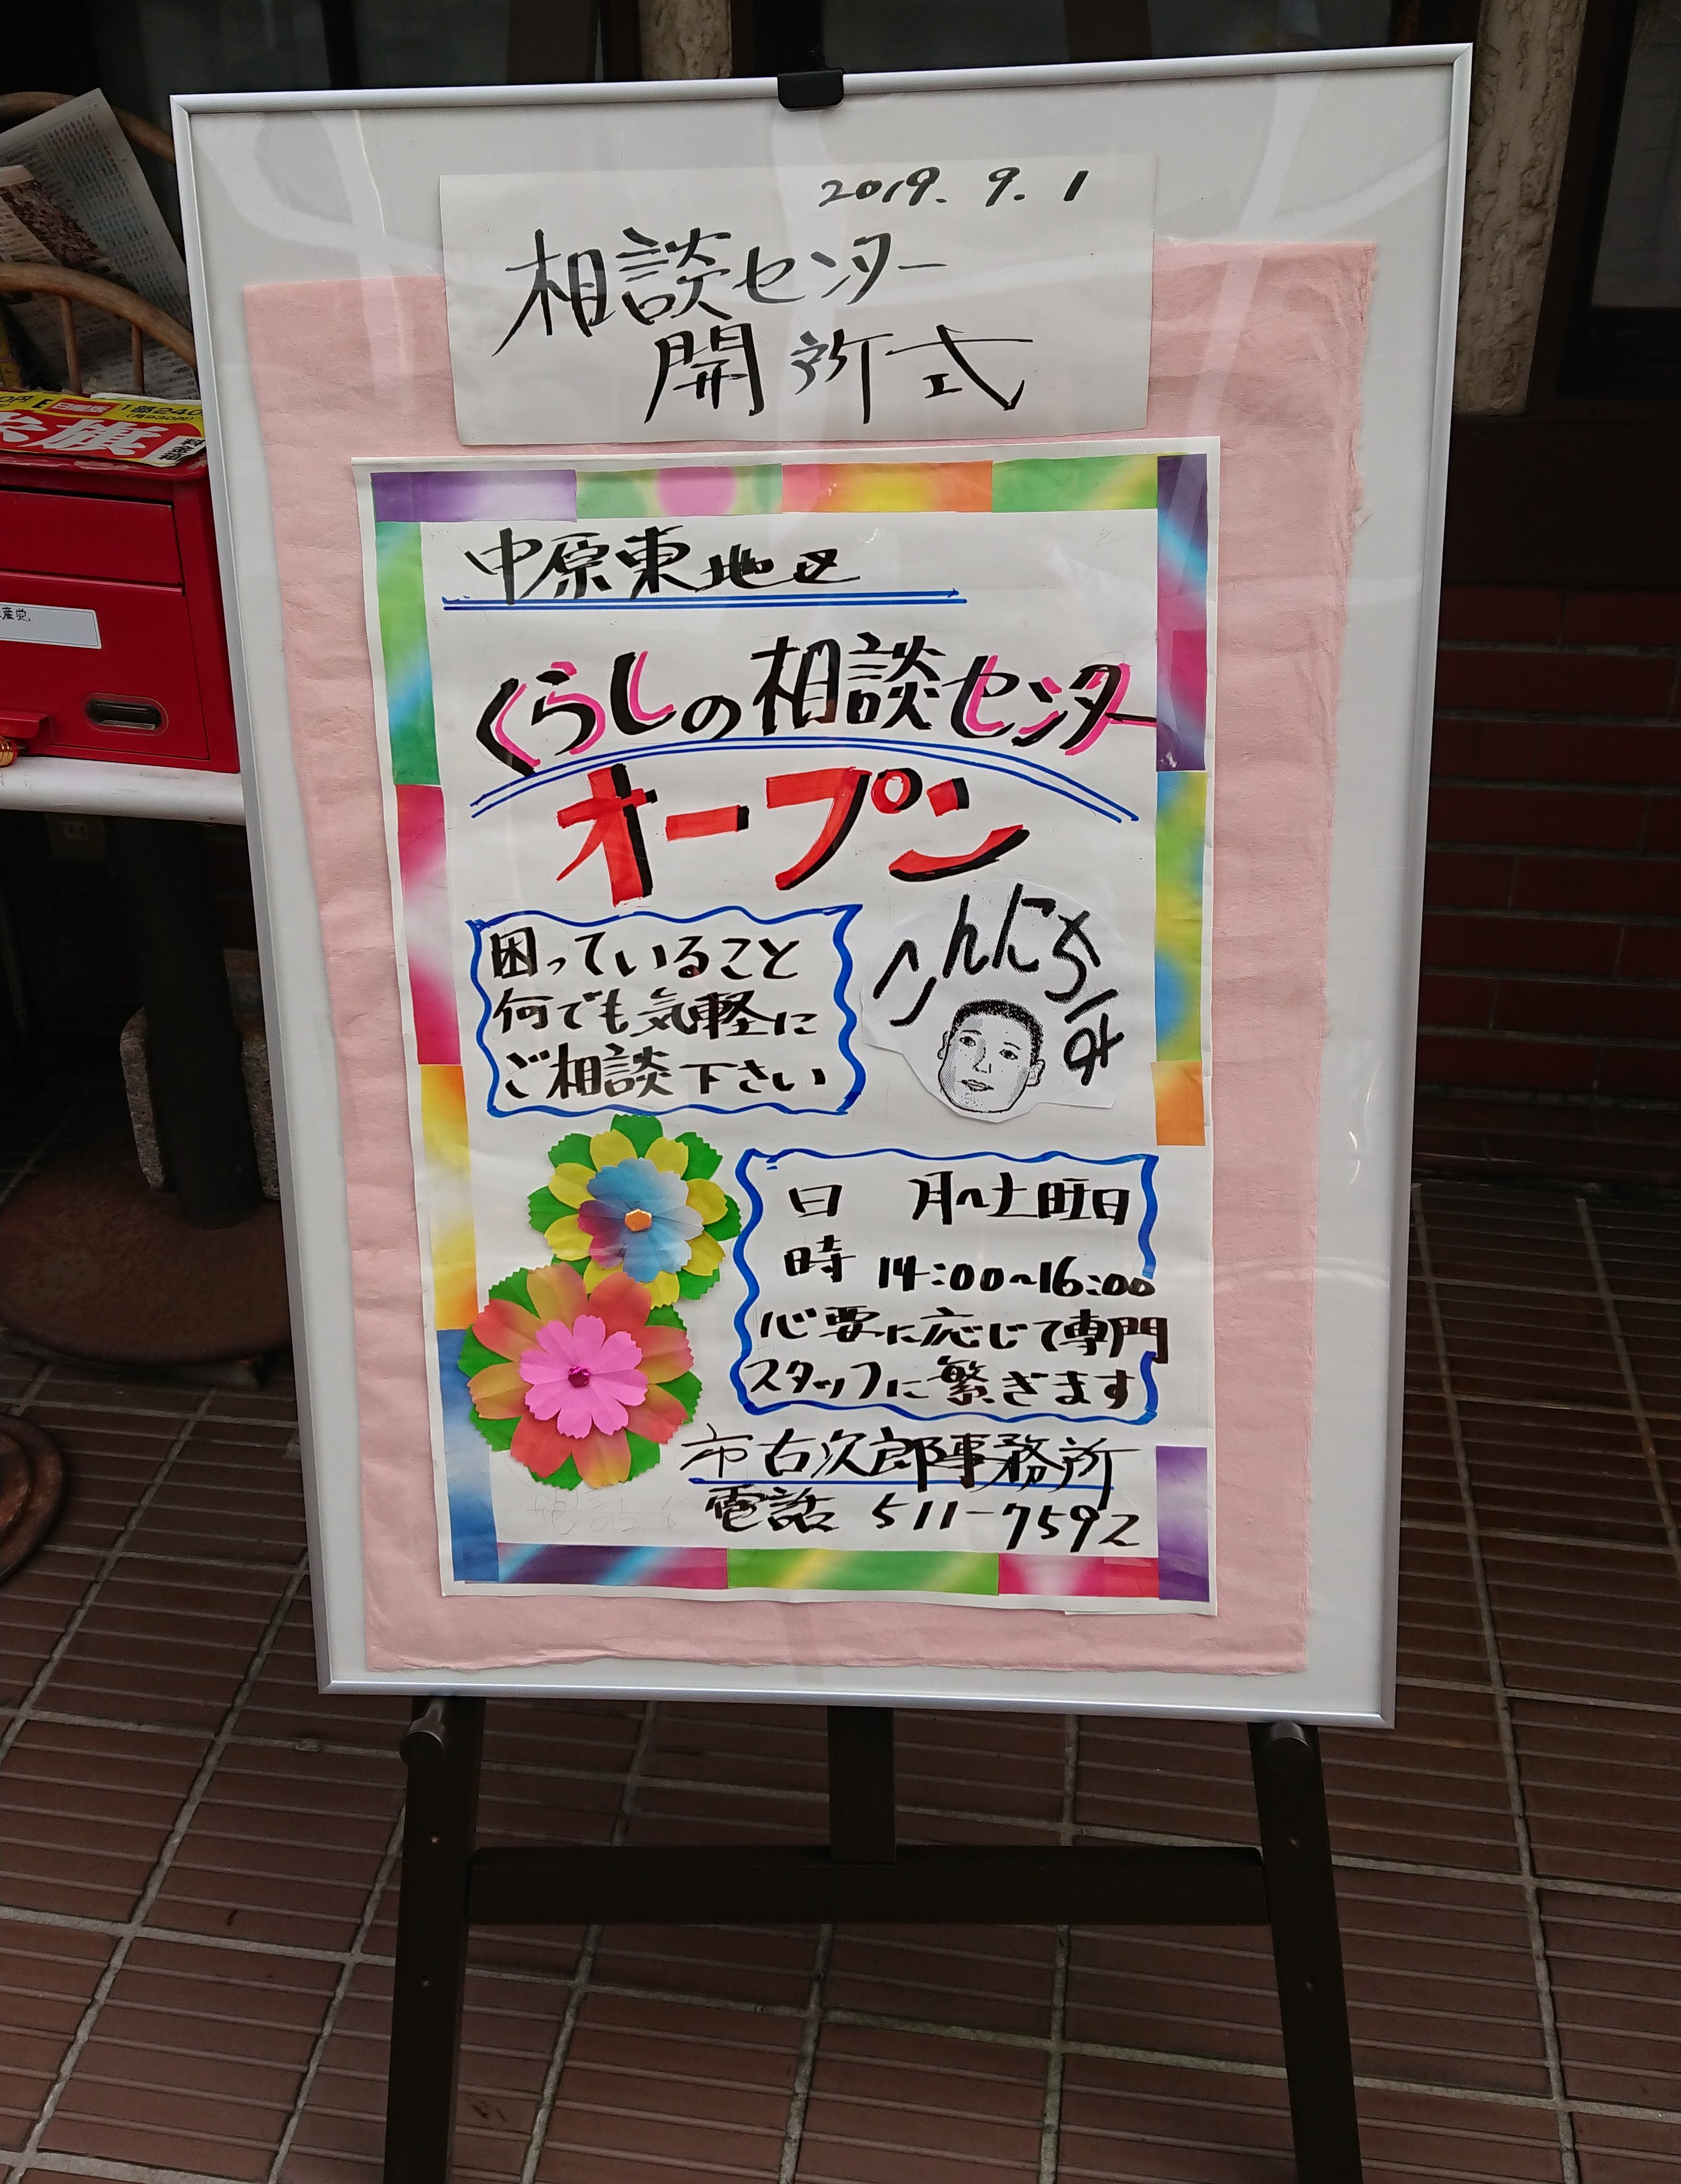 2019. 9. 1
相談センター
開所式
中原東地区
くらしの相談センター
オープン
困っていること
何でも気軽に
ご相談下さい
こんにちは
日 月〜土旺日
時 14:00〜16:00
心要に応じて専門
スタッフに繁ぎます
市古次郎事務所
電話 511-7592
1部240
(月930円)
旗
産党